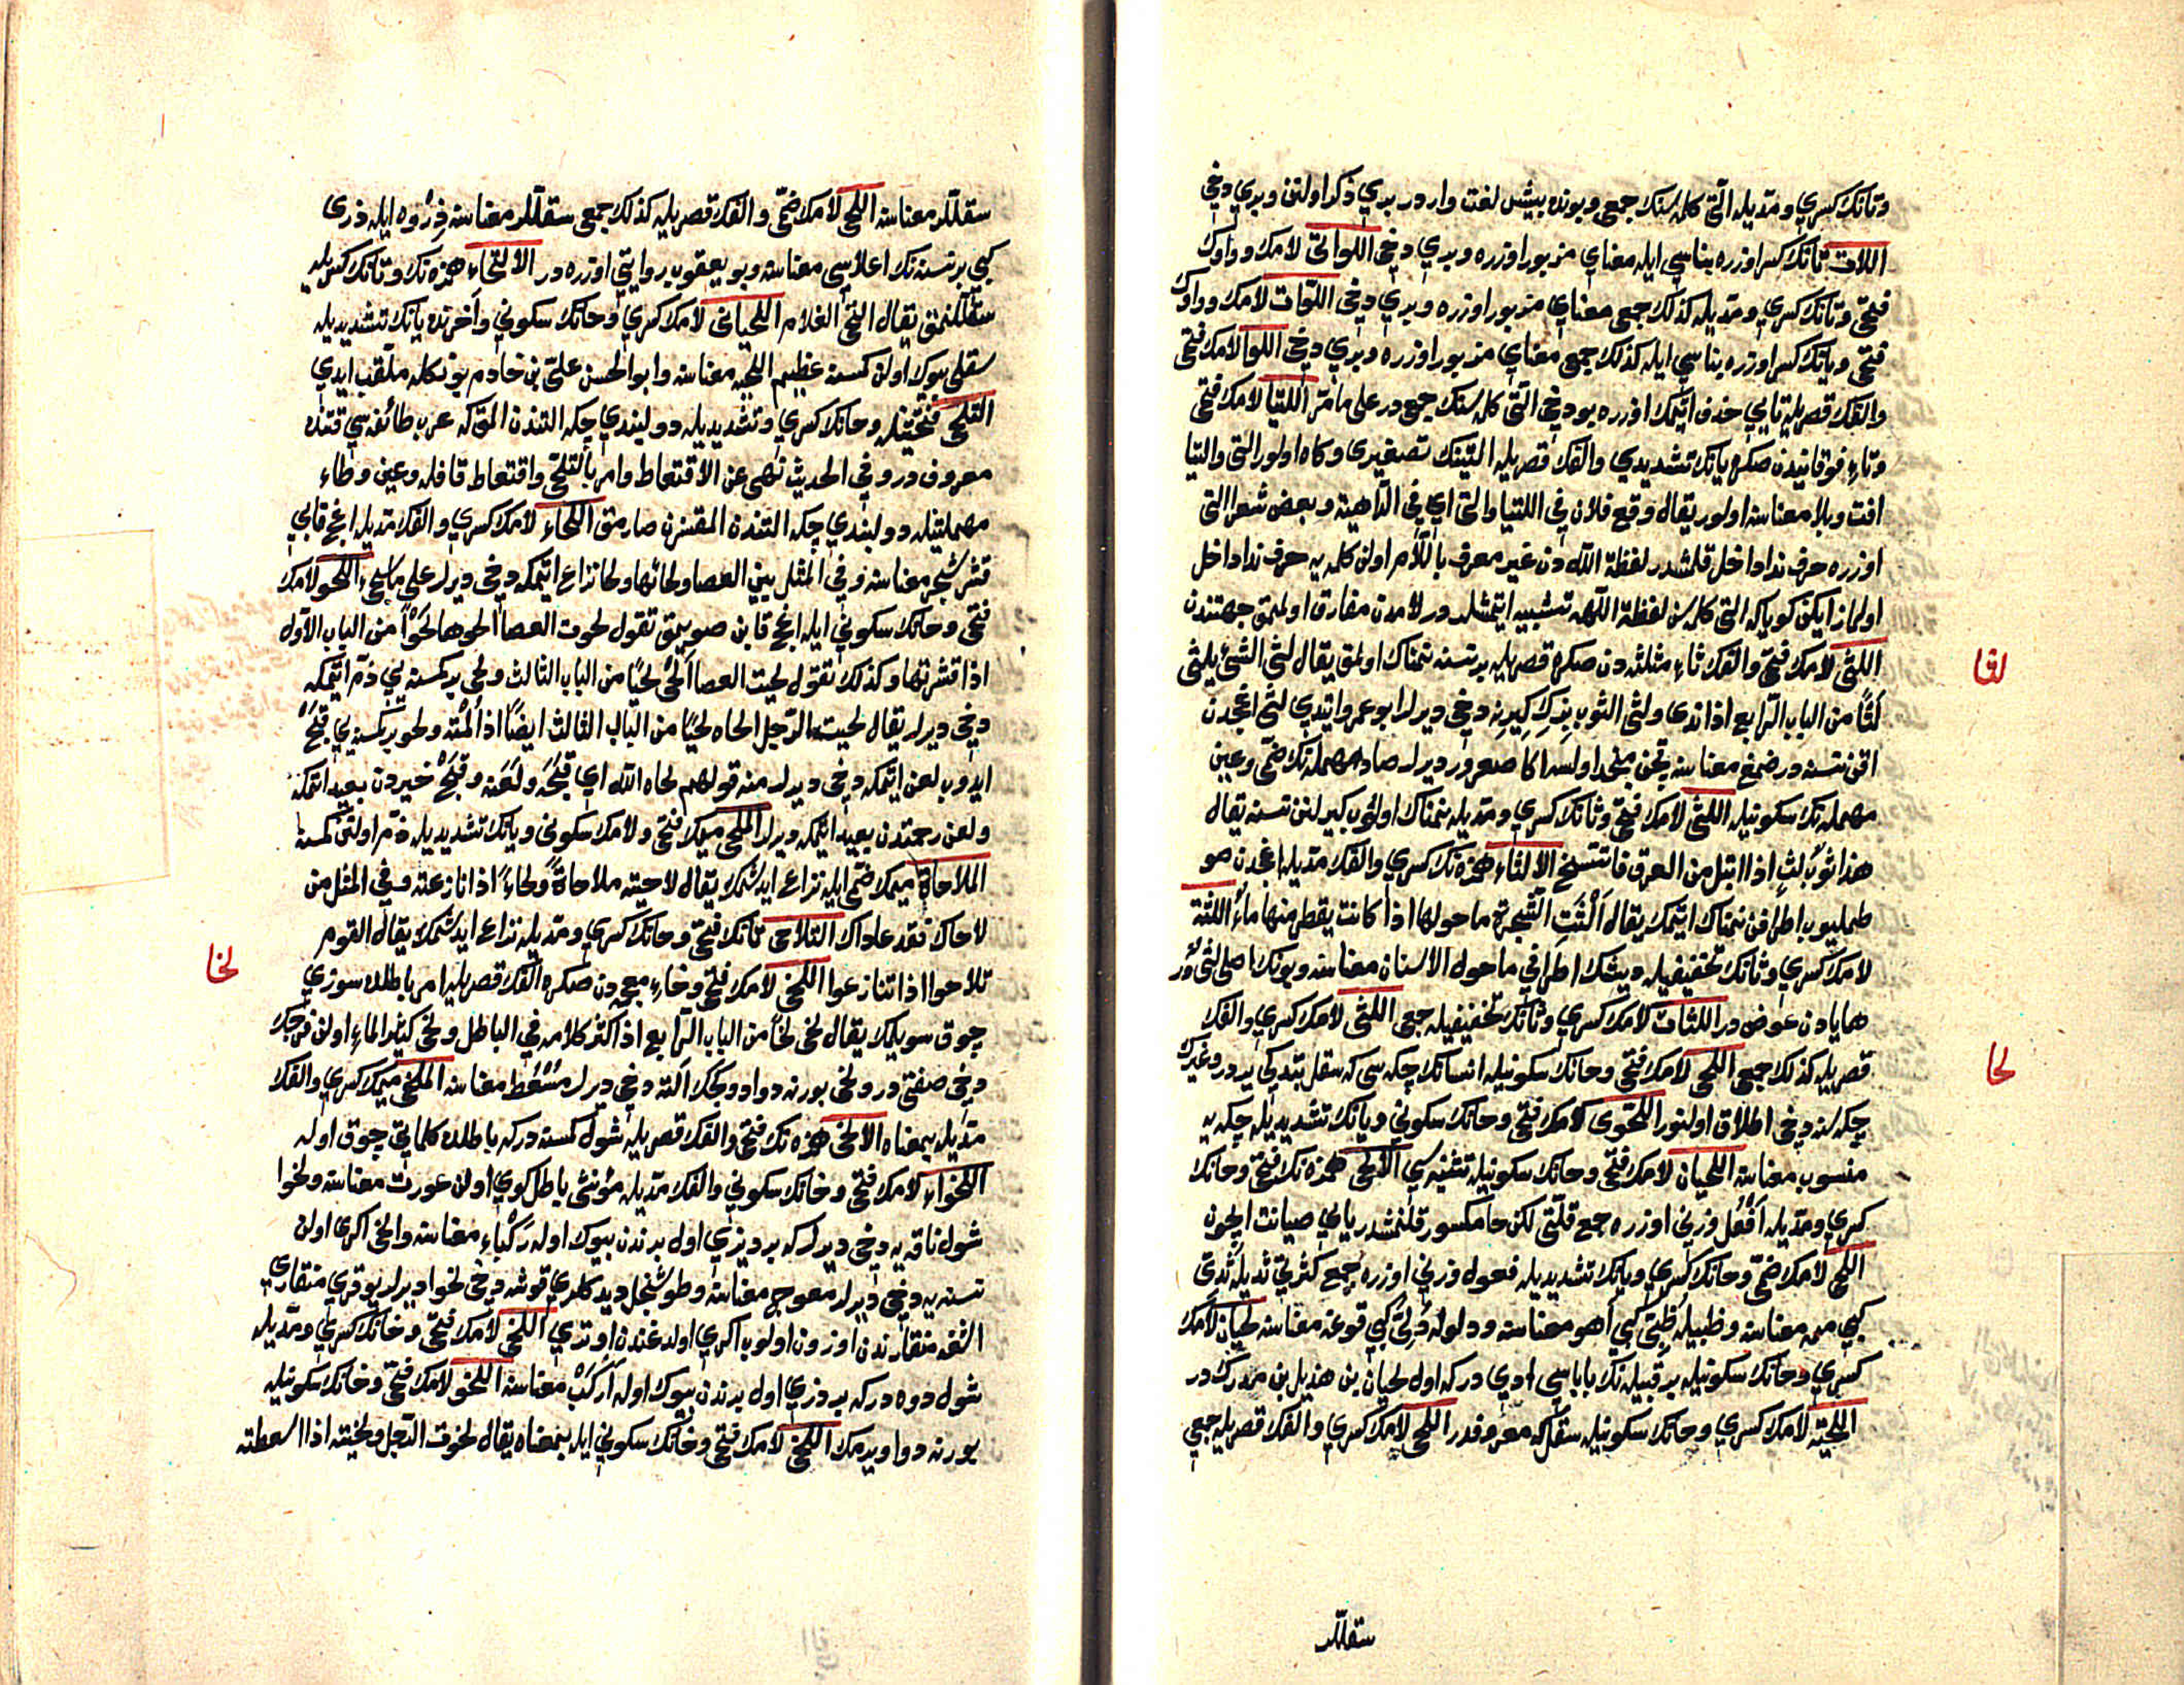 وتانك كسري ومدّيله التي كلمه سنك جمعى وبونده بيش لغت واردر بري ذكر اولنن وبري دخى
اللات تانك كسر اوزره بناسي ايله معناي مزبور اوزره وبري دخى اللواتى لامك وواوك
فتحى وتانك كسري ومدّيله كذلك جمعى معناي مزبور اوزره وبري دخى اللوات لامك وواوك
فتحى وتانك كسر اوزره بناسي ايله كذلك جمع معناي مزبور اوزره وبري دخى اللوا لامك فتحى
والفك قصريله تايي حذف اتمك اوزره بو دخى التى كلمه سنك جمعدر على ما مرّ اللتيا لامك فتحى
وتاء فوقانيدن صكره يانك تشديدي والفك قصريله التينك تصغيرى وكاه اولور التى والتيا
افت وبلا معناسنه اولور يقال وقع فلان في اللتيا والتى اي في الداهية وبعض شعرا التى
اوزره حرف ندا داخل قلمشدر لفظة الله دن غير معرف باللام اولن كلمه يه حرف ندا داخل
اولماز ايكن كويا كه التى كلمه سن لفظة اللهه تشبيه ايتمشلدر لامدن مفارق اولمق جهتندن
اللثى لامك فتحى والفك ثاء مثلثه دن صكره قصريله بر نسنه نمناك اولمق يقال لثى الشئ يلثى
لثًا من الباب الرابع اذا ندى ولثى الثوب دخى ديرلر ابو عمرو ايتدي لثى اغجدن
اقن نسنه در ضمغ معناسنه قچن منجمد اولسه اكا صعرور ديرلر صاد مهمله نك ضمّى وعين
مهمله نك سكونيله اللثى لامك فتحى وثانك كسري ومدّيله نمناك اولوب كيرلنن نسنه يقال
هذا ثوب لثٍ اذا ابتل من العرق فاتسخ الالثاء همزه نك كسري والفك مدّيله اغجدن صو
طملیوب اطرافن نمناك ايتمك يقال اَلْثَتِ الشجرة ما حولها اذا كانت يقطر منها ماء اللثة
لامك كسري وثانك تخفيفيله ديشك اطرافي ما حول الاسنان معناسنه وبونك اصلى لثىٌ در
ها يادن عوض در اللثات لامك كسري وثانك تخفيفيله جمعى اللثى لامك كسري والفك
قصريله كذلك جمعى اللحى لامك فتحى وحانك سكونيله انسانك چكه سى كه سقل بتديكي يردر وغيرك
چكه سنه دخى اطلاق اولنور اللحوى لامك فتحى وحانك سكوني ويانك تشديديله چكه يه
منسوب معناسنه اللحيان لامك فتحى وحانك سكونيله تثنيه سي الالحى همزه نك فتحى وحانك
كسري ومدّيله اَفْعُل وزني اوزره جمع قلّتى لكن حا مكسور قلنمشدر يايي صيانت ايچون
اللحى لامك ضمّى وحانك كسري ويانك تشديديله فعول وزني اوزره جمع كثرتى ثديله ثديّ
كبي ممه معناسنه وظبيله ظبيّ كبي آهو معناسنه ودلوله دُلِيّ كبي قوغه معناسنه لحيان لامك
كسري وحانك سكونيله بر قبيله نك باباسي ادي در كه اول لحيان بن هذيل بن مدركه در
اللحية لامك كسري وحانك سكونيله سقل كه معروفدر اللحى لامك كسري والفك قصريله جمعي
سقللر
لثا
لحا
سقللر معناسنه اللحى لامك ضمّى والفك قصريله كذلك جمع سقللر معناسنه ذِرْوه ايله ذرى
كبي بر نسنه نك اعلاسي معناسنه وبو يعقوب روايتى اوزره در الالتحاء همزه نك وتانك كسريله
سقللنمق يقال التحى الغلام اللحيانى لامك كسري وحانك سكوني وآخرنده يانك تشديديله
سقلى بيوك اولن كمسنه عظيم اللحيه معناسنه وابو الحسن علىّ بن خادم بونكله ملقّب ايدي
التلحى فتحتينله وحانك كسري وتشديديله دولبندي چكه التندن المق كه عرب طائفه سي قتنده
معروفدر وفي الحديث نهى عن الاقتعاط وامر بالتلحّى واقتعاط قافله وعين وطاء
مهملتينله دولبندي چكه التندن المقسزن صارمق اللحاء لامك كسري والفك مدّيله اغج قابي
قشر شجر معناسنه وفي المثل بين العصا ولحائها ولحا نزاع ايتمكه دخى ديرلر على ما سيجى اللحو لامك
فتحى وحانك سكوني ايله اغج قابن صويمق تقول لحوت العصا الحوها لحوًا من الباب الاول
اذا قشرتها وكذلك تقول لحيت العصا اَلْحى لحيًا من الباب الثالث ولحى بر كمسنه يي ذمّ ايتمكه
دخى ديرلر يقال لحيت الرجل الحاه لحيًا من الباب الثالث ايضًا اذا لمته ولحو بر كمسنه يي قبح
ايدوب لعن ايتمكه دخى ديرلر منه قولهم لحاه الله اي قبّحه ولعنه وقبّح خيردن بعيد اتمكه
ولعن رحمتدن بعيد ايتمكه ديرلر الملحى ميمك فتحى ولامك سكونى ويانك تشديديله ذمّ اولنن كمسنه
الملاحاة ميمك ضمّى ايله نزاع ايدشمك يقال لاحيته ملاحاةً ولحاءً اذا نازعته وفي المثل من
لاحاك فقد عاداك التلاحى تانك فتحى وحانك كسري ومدّيله نزاع ايدشمك يقال القوم
تلاحوا اذا تنازعوا اللخى لامك فتحى وخاء معجمه دن صكره الفك قصريله امر باطلده سوزي
چوق سويلمك يقال لخى لخًا من الباب الرابع اذا كثر كلامه في الباطل ولخى كثير الماء اولن فرجك
دخى صفتى در ولخى بورنه دوا دوكجك آلته دخى ديرلر مُسْعُط معناسنه الملخى ميمك كسري والفك
مدّيله بمعناه الالخى همزه نك فتحى والفك قصريله شول كمسنه در كه باطلده كلماتى چوق اوله
اللخواء لامك فتحى وخانك سكوني والفك مدّيله مؤنثى باطل كوي اولن عورت معناسنه ولخوا
شول ناقه يه دخى ديرلر كه بر ديزي اول برندن بيوك اوله رَكْباء معناسنه والخى اكرى اولن
نسنه يه دخى ديرلر معوج معناسنه وطوشنجل ديدكلري قوشه دخى لخوا ديرلر يوقري منقاري
اشغه منقارندن اوزون اولوب اكري اولدغندن اوتري اللخى لامك فتحى وخانك كسري ومدّيله
شول دوه در كه بر دزي اول برندن بيوك اوله اَرْكَبْ معناسنه اللخو لامك فتحى وخانك سكونيله
بورنه دوا ويرمك اللخى لامك فتحى وخانك سكوني ايله بمعناه يقال لخوت الرجل ولخيته اذا اسعطته
لخا